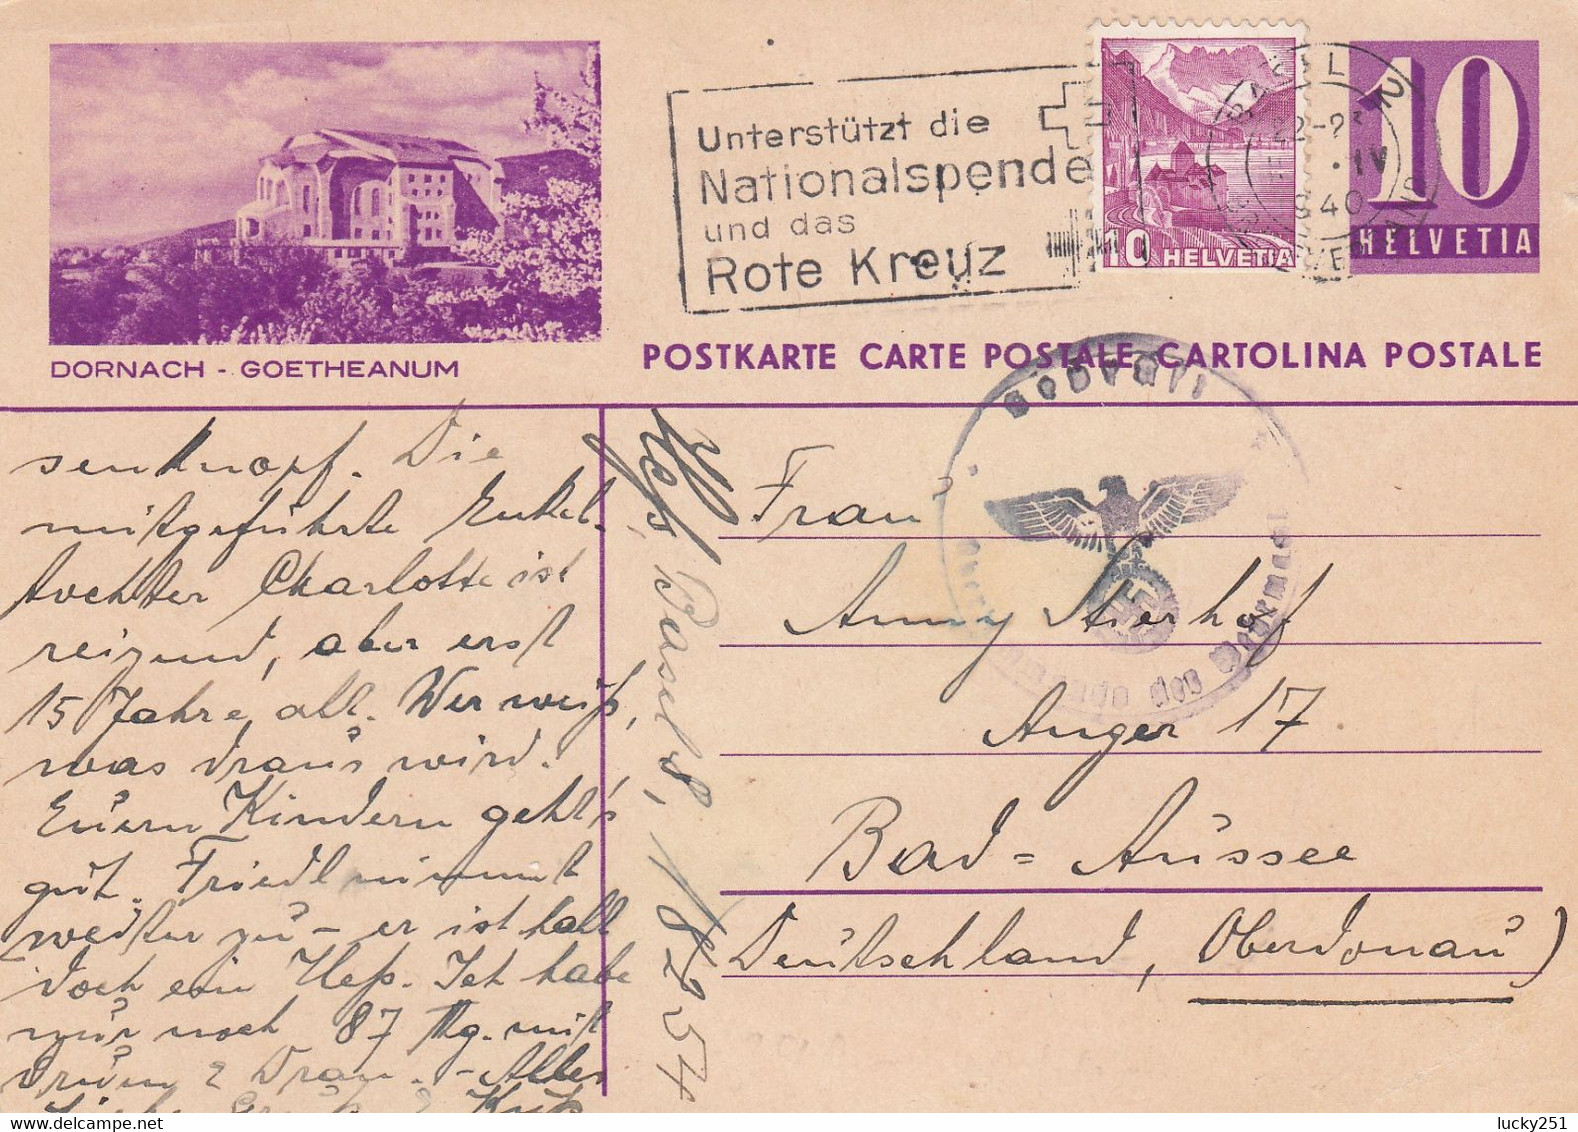 Unterstützt die
Nationalspende
und das
Rote Kreuz
BASEL 2
22-23
IV
1940
10
HELVETIA
10
HELVETIA
DORNACH - GOETHEANUM
POSTKARTE CARTE POSTALE CARTOLINA POSTALE
Geöffnet
Oberkommando der Wehrmacht
senknopf. Die
mitgeführte Enkel-
tochter Charlotte ist
reizend, aber erst
15 Jahre alt. Wer weiß,
was draus wird.
Euern Kindern geht's
gut. Friedl nimmt
weiter zu - er ist halt
doch ein Heß. Ich habe
nur noch 87 Kg. mit
drum & Dran. - Alles
Heß, Basel 8,
Frau
Anny Stierhof
Anger 17
Bad-Aussee
Deutschland, Oberdonau)
lucky251